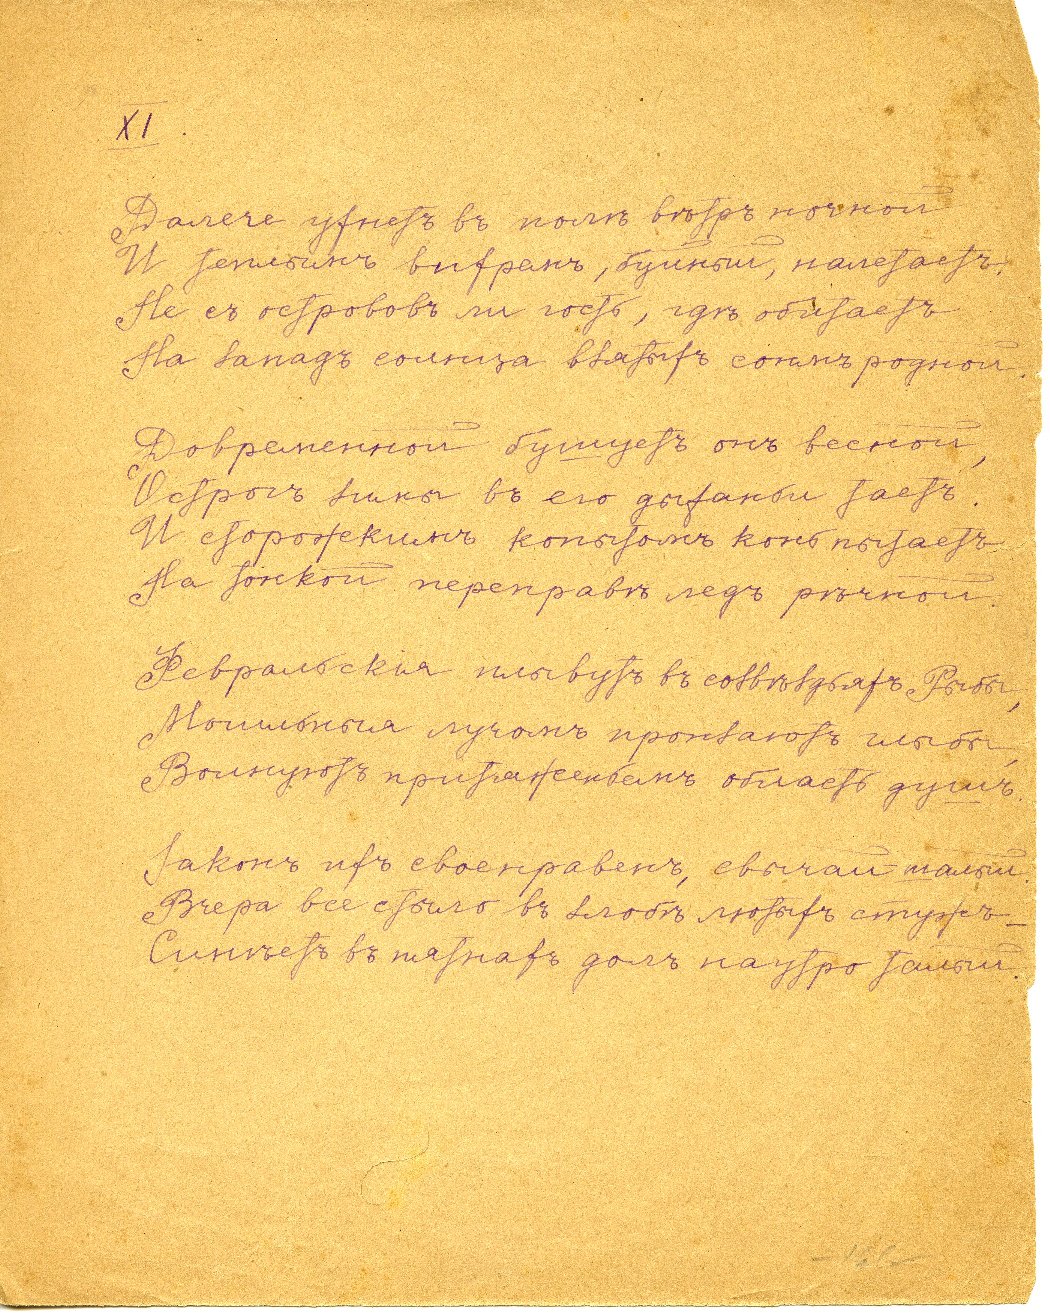 XI
Далече ухнетъ въ полѣ вѣтръ ночной
И теплымъ вихремъ, буйный, налетаетъ.
Не съ острововъ ли гость, гдѣ обитаетъ
На западъ солнца взятыхъ сонмъ родной.
Довременной бушуетъ онъ весной,
Острогъ зимы въ его дыханьи таетъ.
И сторожкимъ копытомъ конь пытаетъ
На тонкой переправѣ ледъ рѣчной.
Февральскія плывутъ въ созвѣздьяхъ Рыбы,
Могильныя лучомъ пронзаютъ глыбы,
Волнуютъ притяженьемъ область душъ.
Законъ ихъ своенравенъ, свычай шалый.
Вчера все стыло въ злобѣ лютыхъ стужъ –
Синѣетъ въ пятнахъ долъ наутро талый.